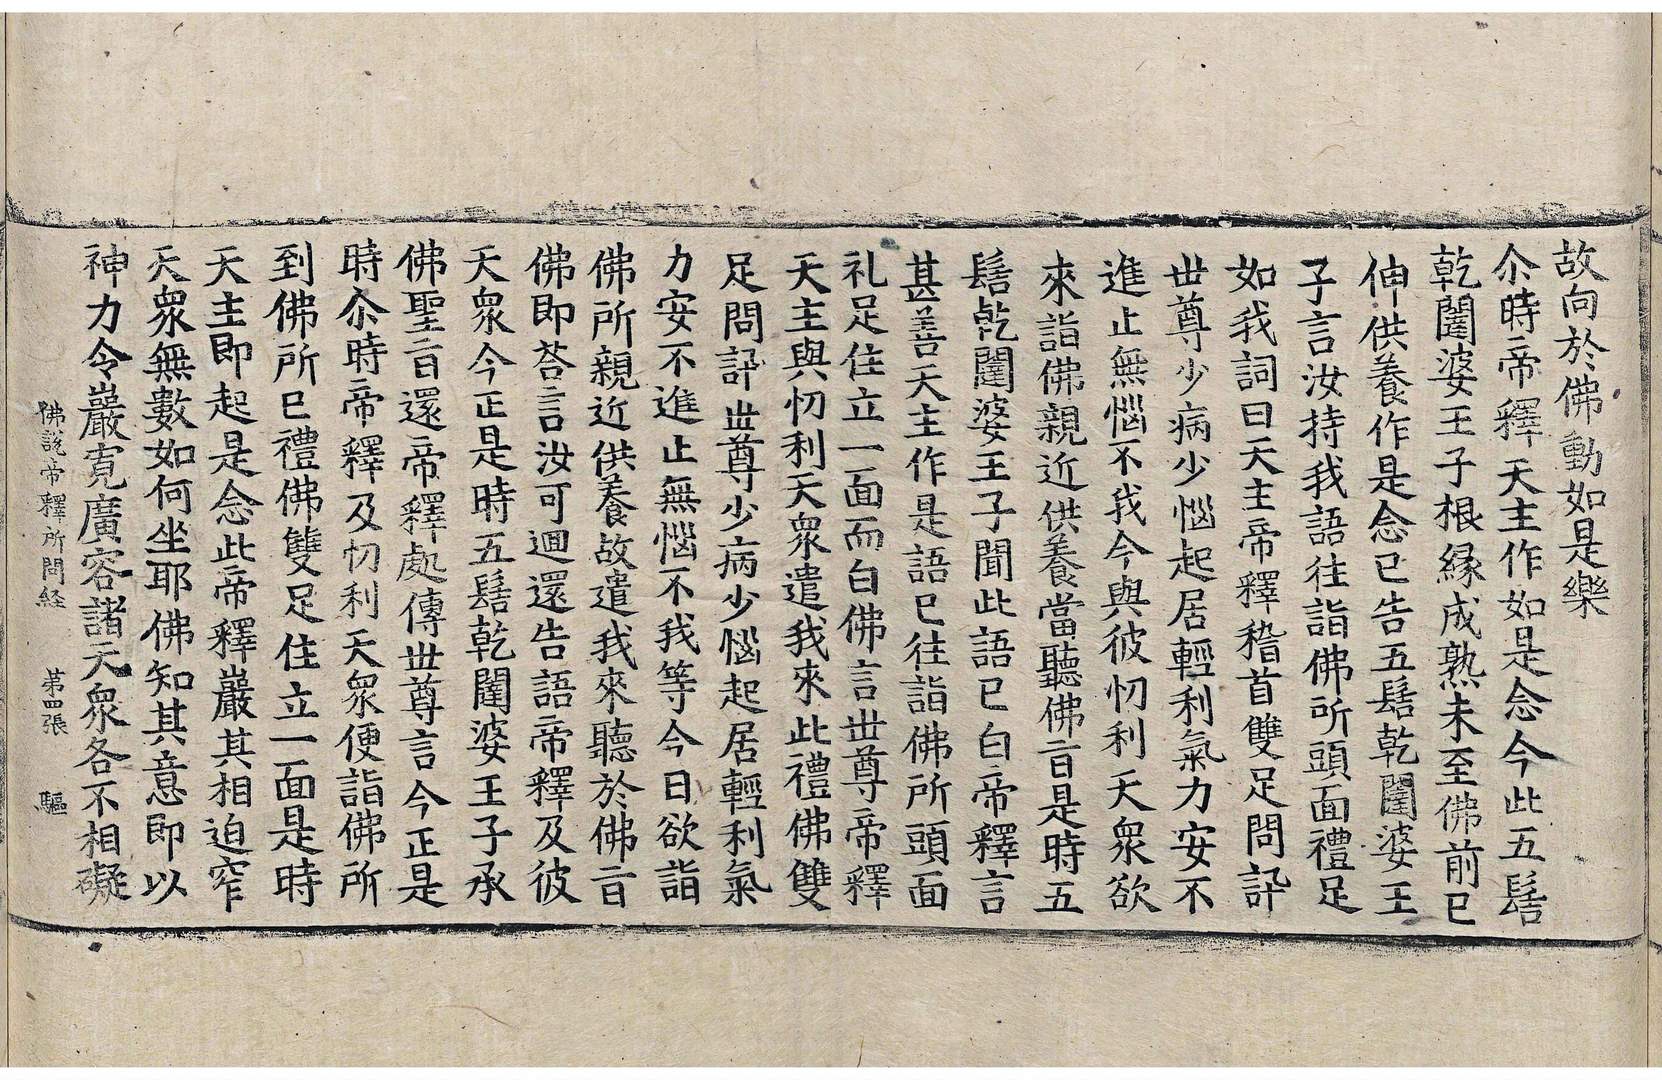 故向於佛動如是樂
尒時帝釋天主作如是念今此五髻
乾闥婆王子根緣成熟未至佛前已
伸供養作是念已告五髻乾闥婆王
子言汝持我語往詣佛所頭面禮足
如我詞曰天主帝釋稽首雙足問訊
世尊少病少惱起居輕利氣力安不
進止無惱不我今與彼忉利天衆欲
來詣佛親近供養當聽佛旨是時五
髻乾闥婆王子聞此語已白帝釋言
甚善天主作是語已往詣佛所頭面
礼足住立一面而白佛言世尊帝釋
天主與忉利天衆遣我來此禮佛雙
足問訊世尊少病少惱起居輕利氣
力安不進止無惱不我等今日欲詣
佛所親近供養故遣我來聽於佛旨
佛即荅言汝可迴還告語帝釋及彼
天衆今正是時五髻乾闥婆王子承
佛聖旨還帝釋處傳世尊言今正是
時尒時帝釋及忉利天衆便詣佛所
到佛所已禮佛雙足住立一面是時
天主即起是念此帝釋巖其相迫窄
天衆無數如何坐耶佛知其意即以
神力令巖寬廣容諸天衆各不相礙
佛說帝釋所問経 第四張 驅